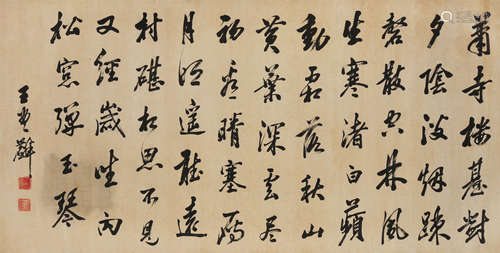 蕭寺樓臺對
夕陰淡烟疎
磬散空林風
生寒渚白蘋
動霜落秋山
黄葉深雲盡
獨看晴塞雁
月明遥聽遠
村碪相思不見
又經歲坐向
松窓彈玉琴
王